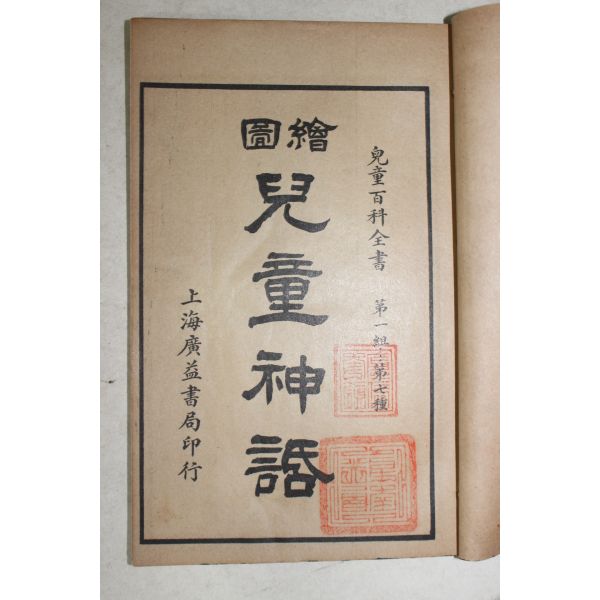 兒童百科全書 第一組 第七種
繪圖
兒童神話
上海廣益書局印行